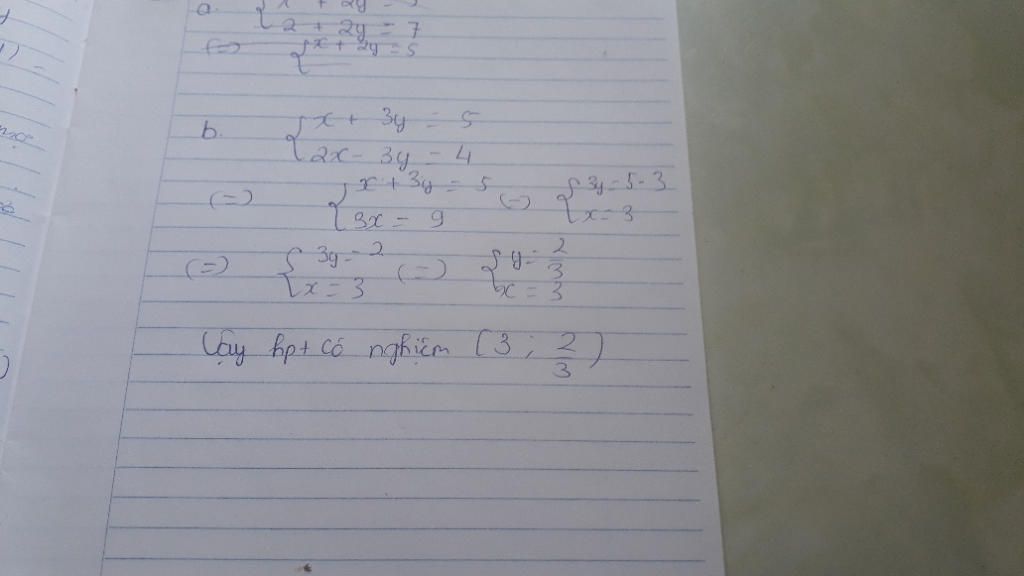 a. { x + 2y =
2 + 2y = 7
(=) { x + 2y = 5
b. { x + 3y = 5
2x - 3y = 4
(=) { x + 3y = 5 (=) { 3y = 5 - 3
3x = 9 x = 3
(=) { 3y = 2 (=) { y = 2/3
x = 3 x = 3
Vậy hpt có nghiệm (3 ; 2/3)